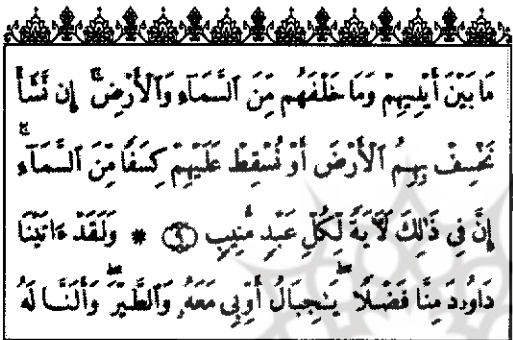 مَا بَيْنَ أَيْدِيهِمْ وَمَا خَلْفَهُم مِّنَ ٱلسَّمَآءِ وَٱلْأَرْضِ ۚ إِن نَّشَأْ
نَخْسِفْ بِهِمُ ٱلْأَرْضَ أَوْ نُسْقِطْ عَلَيْهِمْ كِسَفًا مِّنَ ٱلسَّمَآءِ ۚ
إِنَّ فِى ذَٰلِكَ لَءَايَةً لِّكُلِّ عَبْدٍ مُّنِيبٍ ﴿٩﴾ * وَلَقَدْ ءَاتَيْنَا
دَاوُۥدَ مِنَّا فَضْلًا ۖ يَٰجِبَالُ أَوِّبِى مَعَهُۥ وَٱلطَّيْرَ ۖ وَأَلَنَّا لَهُ